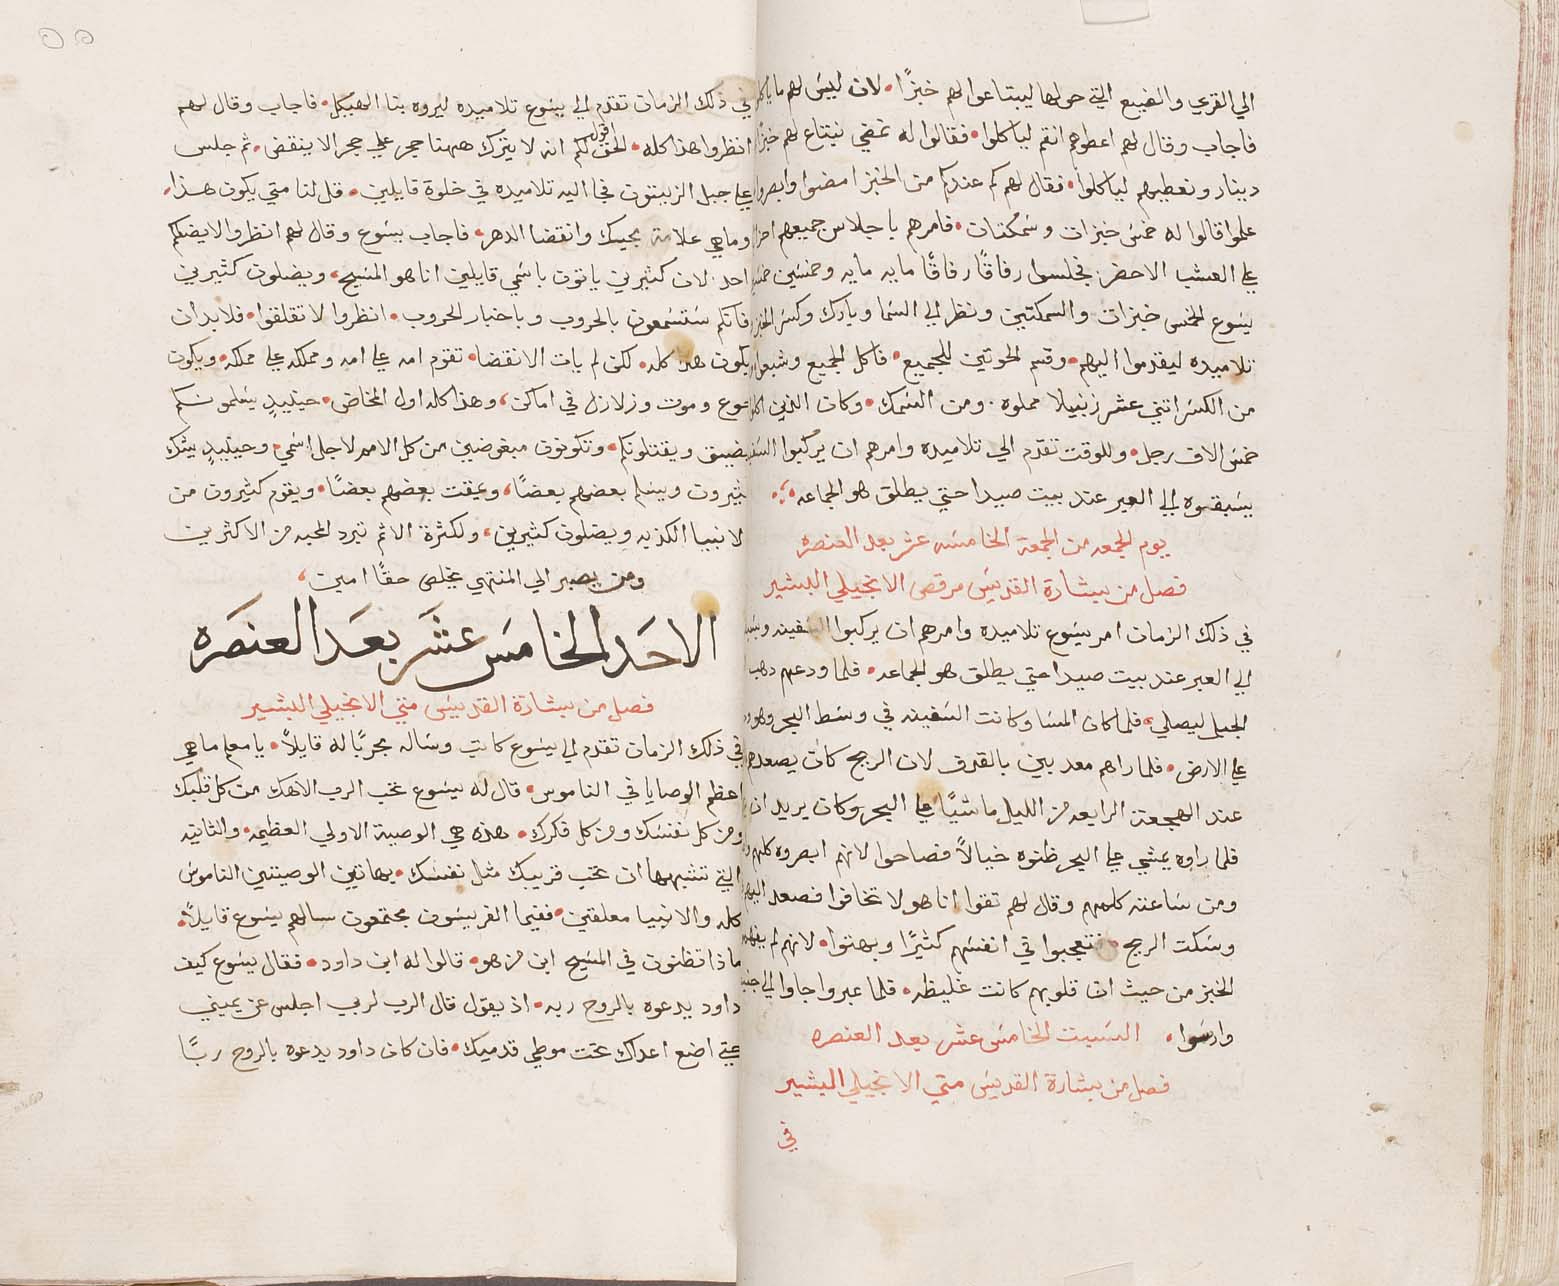 الي القري والضيع التي حولها ليبتاعوا لهم خبزًا. لان ليس لهم ما ياكلو
فاجاب وقال لهم اعطوهم انتم لياكلوا. فقالوا له نمضي نبتاع لهم خبزًا
دينار ونعطيهم لياكلوا. فقال لهم كم عندكم من الخبز امضوا وابصروا
علموا قالوا له خمس خبزات وسمكتان. فامرهم باجلاس جميعهم احزا
علي العشب الاخضر. فجلسوا رفاقًا رفاقًا مايه مايه وخمسين خمسين
يسوع الخمس خبزات والسمكتين ونظر الي السما وبارك وكسر الخبز
تلاميذه ليقدموا اليهم. وقسم الحوتين للجميع. فاكل الجميع وشبعوا
من الكسر اثني عشر زنبيلا مملوه. ومن السمك. وكان الذين اكلوا
خمس الاف رجل. وللوقت تقدم الي تلاميذه وامرهم ان يركبوا السفينه
يسبقوه الي العبر عند بيت صيدا حتي يطلق هو الجماعه.
يوم الجمعه من الجمعة الخامسه عشر بعد العنصره
فصل من بشارة القديس مرقص الانجيلي البشير
في ذلك الزمان امر يسوع تلاميذه وامرهم ان يركبوا السفينه
الي العبر عند بيت صيدا حتي يطلق هو الجماعه. فلما ودعهم ذهب
الجبل ليصلي. فلما كان المسا وكانت السفينه في وسط البحر وهو
علي الارض. فلما راهم معذبين بالقذف لان الريح كان يصعدهم
عند الهجعة الرابعه من الليل ماشيًا علي البحر وكان يريد ان
فلما راوه يمشي علي البحر ظنوه خيالاً فصاحوا لانهم ابصروه كلهم
ومن ساعته كلمهم وقال لهم تقوا انا هو لا تخافوا فصعد اليهم
وسكت الريح. فتعجبوا في انفسهم كثيرًا وبهتوا. لانهم لم يفهموا
الخبز من حيث ان قلوبهم كانت غليظه. فلما عبروا جاوا الي
وارسوا. السبت الخامس عشر بعد العنصره
فصل من بشارة القديس متي الانجيلي البشير
في
في ذلك الزمان تقدم الي يسوع تلاميذه ليروه بنا الهيكل. فاجاب وقال لهم
انظروا هذا كله. الحق اقول لكم انه لا يترك ههنا حجر علي حجر الا ينقض. ثم جلس
علي جبل الزيتون فجا اليه تلاميذه في خلوة قايلين. قل لنا متي يكون هذا.
وما هي علامة مجيك وانقضا الدهر. فاجاب يسوع وقال لهم انظروا لا يضلكم
احد. لان كثيرين ياتون باسمي قايلين انا هو المسيح، ويضلون كثيرين
فانكم ستسمعون بالحروب وباخبار الحروب. انظروا لا تقلقوا. فلا بد ان
يكون هذا كله. لكن لم يات الانقضا. تقوم امه علي امه ومملكه علي مملكه. ويكون
جوع وموت وزلازل في اماكن، وهذا كله اول المخاض. حينيذٍ يسلمونكم
بضيق ويقتلونكم. وتكونون مبغوضين من كل الامم لاجل اسمي. وحينيذٍ يشك
كثيرون ويسلم بعضهم بعضًا، ويمقت بعضهم بعضًا. ويقوم كثيرون من
الانبيا الكذبه ويضلون كثيرين، ولكثرة الاثم تبرد المحبه من الاكثرين
ومن يصبر الي المنتهي يخلص حقًا امين،
الاحَد الخامسَ عشَر بعَد العنصَره
فصل من بشارة القديس متي الانجيلي البشير
في ذلك الزمان تقدم الي يسوع كاتب وساله مجربًا له قايلاً. يا معلم ما هي
اعظم الوصايا في الناموس. قال له يسوع تحب الرب الاهك من كل قلبك
ومن كل نفسك ومن كل فكرك. هذه هي الوصية الاولي العظيمه. والثانيه
التي تشبهها ان تحب قريبك مثل نفسك. بهاتين الوصيتين الناموس
كله والانبيا معلقين. ففيما الفريسون مجتمعون سالهم يسوع قايلاً.
ماذا تظنون في المسيح ابن من هو. قالوا له ابن داود. فقال يسوع كيف
داود يدعوه بالروح ربه. اذ يقول قال الرب لربي اجلس عن يميني
حتي اضع اعداك تحت موطي قدميك. فان كان داود يدعوه بالروح ربًا